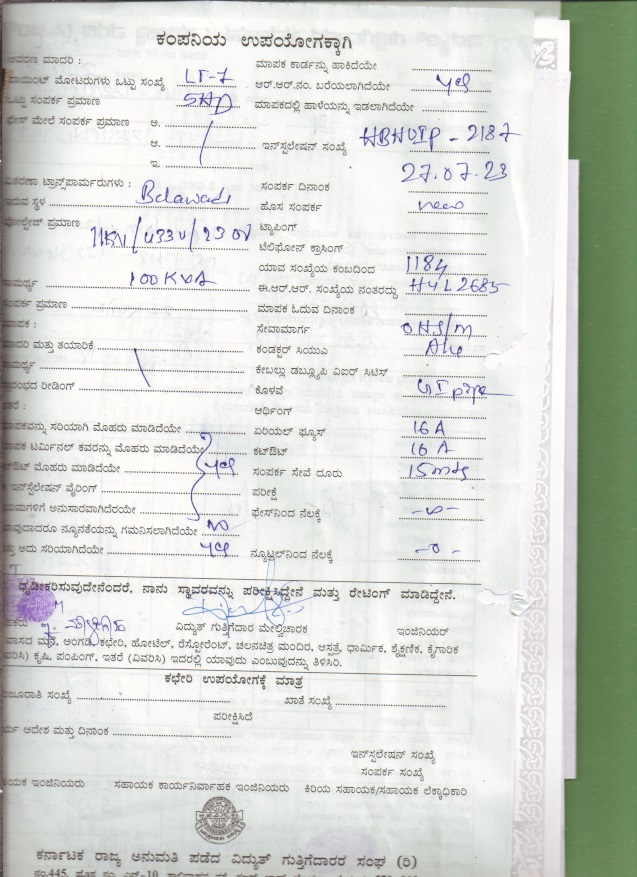 ಕಂಪನಿಯ ಉಪಯೋಗಕ್ಕಾಗಿ
ಮಾಪಕ ಕಾರ್ಡನ್ನು ಹಾಕಿದೆಯೇ
ಮಾದರಿ :
ಮೋಟರುಗಳು ಒಟ್ಟು ಸಂಖ್ಯೆ LT-7 ಆರ್.ಆರ್.ನಂ. ಬರೆಯಲಾಗಿದೆಯೇ yes
ಒಟ್ಟು ಸಂಪರ್ಕ ಪ್ರಮಾಣ ಮಾಪಕದಲ್ಲಿ ಹಾಳೆಯನ್ನು ಇಡಲಾಗಿದೆಯೇ
ಮೇಲೆ ಸಂಪರ್ಕ ಪ್ರಮಾಣ ಅ.
ಆ. ಇನ್‌ಸ್ಟಲೇಷನ್ ಸಂಖ್ಯೆ - 2187
ಇ. 27.07.23
ಟ್ರಾನ್ಸ್‌ಫಾರ್ಮರುಗಳು : ಸಂಪರ್ಕ ದಿನಾಂಕ
ಇರುವ ಸ್ಥಳ Belawadi ಹೊಸ ಸಂಪರ್ಕ new
ಪ್ರಮಾಣ 11KV/433V/230V ಟ್ಯಾಪಿಂಗ್
ಟೆಲಿಫೋನ್ ಕ್ರಾಸಿಂಗ್
ಯಾವ ಸಂಖ್ಯೆಯ ಕಂಬದಿಂದ 1184
100 KVA ಈ.ಆರ್.ಆರ್. ಸಂಖ್ಯೆಯ ನಂತರದ್ದು HYL2685
ಸಂಪರ್ಕ ಪ್ರಮಾಣ ಮಾಪಕ ಓದುವ ದಿನಾಂಕ
ಮಾಪಕ : ಸೇವಾಮಾರ್ಗ OHS/m
ಮಾದರಿ ಮತ್ತು ತಯಾರಿಕೆ ಕಂಡಕ್ಟರ್ ಸಿಯುಎ
ಕೇಬಲ್ಲು ಡಬ್ಲ್ಯೂಪಿ ಎಐರ್ ಸಿಟಿಸ್
ರೀಡಿಂಗ್ ಕೊಳವೆ GI pipe
ಆರ್ಥಿಂಗ್
ಸರಿಯಾಗಿ ಮೊಹರು ಮಾಡಿದೆಯೇ ಏರಿಯಲ್ ಫ್ಯೂಸ್ 16 A
ಟರ್ಮಿನಲ್ ಕವರನ್ನು ಮೊಹರು ಮಾಡಿದೆಯೇ ಕಟ್‌ಔಟ್ 16 A
ಮೊಹರು ಮಾಡಿದೆಯೇ yes ಸಂಪರ್ಕ ಸೇವೆ ದೂರು 15mts
ಇನ್‌ಸ್ಟಲೇಷನ್ ವೈರಿಂಗ್ ಪರೀಕ್ಷೆ
ಅನುಸಾರವಾಗಿದೆರೆಯೇ ಫೇಸ್‌ನಿಂದ ನೆಲಕ್ಕೆ
ನ್ಯೂನತೆಯನ್ನು ಗಮನಿಸಲಾಗಿದೆಯೇ NO
ಅದು ಸರಿಯಾಗಿದೆಯೇ yes ನ್ಯೂಟ್ರಲ್‌ನಿಂದ ನೆಲಕ್ಕೆ -0-
ದೃಢೀಕರಿಸುವುದೇನೆಂದರೆ, ನಾನು ಸ್ಥಾವರವನ್ನು ಪರೀಕ್ಷಿಸಿದ್ದೇನೆ ಮತ್ತು ರೇಟಿಂಗ್ ಮಾಡಿದ್ದೇನೆ.
ವಿದ್ಯುತ್ ಗುತ್ತಿಗೆದಾರ ಮೇಲ್ವಿಚಾರಕ ಇಂಜಿನಿಯರ್
ಮನೆ, ಅಂಗಡಿ, ಕಛೇರಿ, ಹೋಟೆಲ್, ರೆಸ್ಟೋರೆಂಟ್, ಚಲನಚಿತ್ರ ಮಂದಿರ, ಆಸ್ಪತ್ರೆ, ಧಾರ್ಮಿಕ, ಶೈಕ್ಷಣಿಕ, ಕೈಗಾರಿಕ
ಕೃಷಿ, ಪಂಪಿಂಗ್, ಇತರೆ (ವಿವರಿಸಿ) ಇದರಲ್ಲಿ ಯಾವುದು ಎಂಬುವುದನ್ನು ತಿಳಿಸಿರಿ.
ಕಛೇರಿ ಉಪಯೋಗಕ್ಕೆ ಮಾತ್ರ
ಸಂಖ್ಯೆ ಖಾತೆ ಸಂಖ್ಯೆ
ಪರೀಕ್ಷಿಸಿದೆ
ಆದೇಶ ಮತ್ತು ದಿನಾಂಕ
ಇನ್‌ಸ್ಟಲೇಷನ್ ಸಂಖ್ಯೆ
ಸಂಪರ್ಕ ಸಂಖ್ಯೆ
ಇಂಜಿನಿಯರು ಸಹಾಯಕ ಕಾರ್ಯನಿರ್ವಾಹಕ ಇಂಜಿನಿಯರು ಕಿರಿಯ ಸಹಾಯಕ/ಸಹಾಯಕ ಲೆಕ್ಕಾಧಿಕಾರಿ
ಕರ್ನಾಟಕ ರಾಜ್ಯ ಅನುಮತಿ ಪಡೆದ ವಿದ್ಯುತ್ ಗುತ್ತಿಗೆದಾರರ ಸಂಘ (ರಿ)